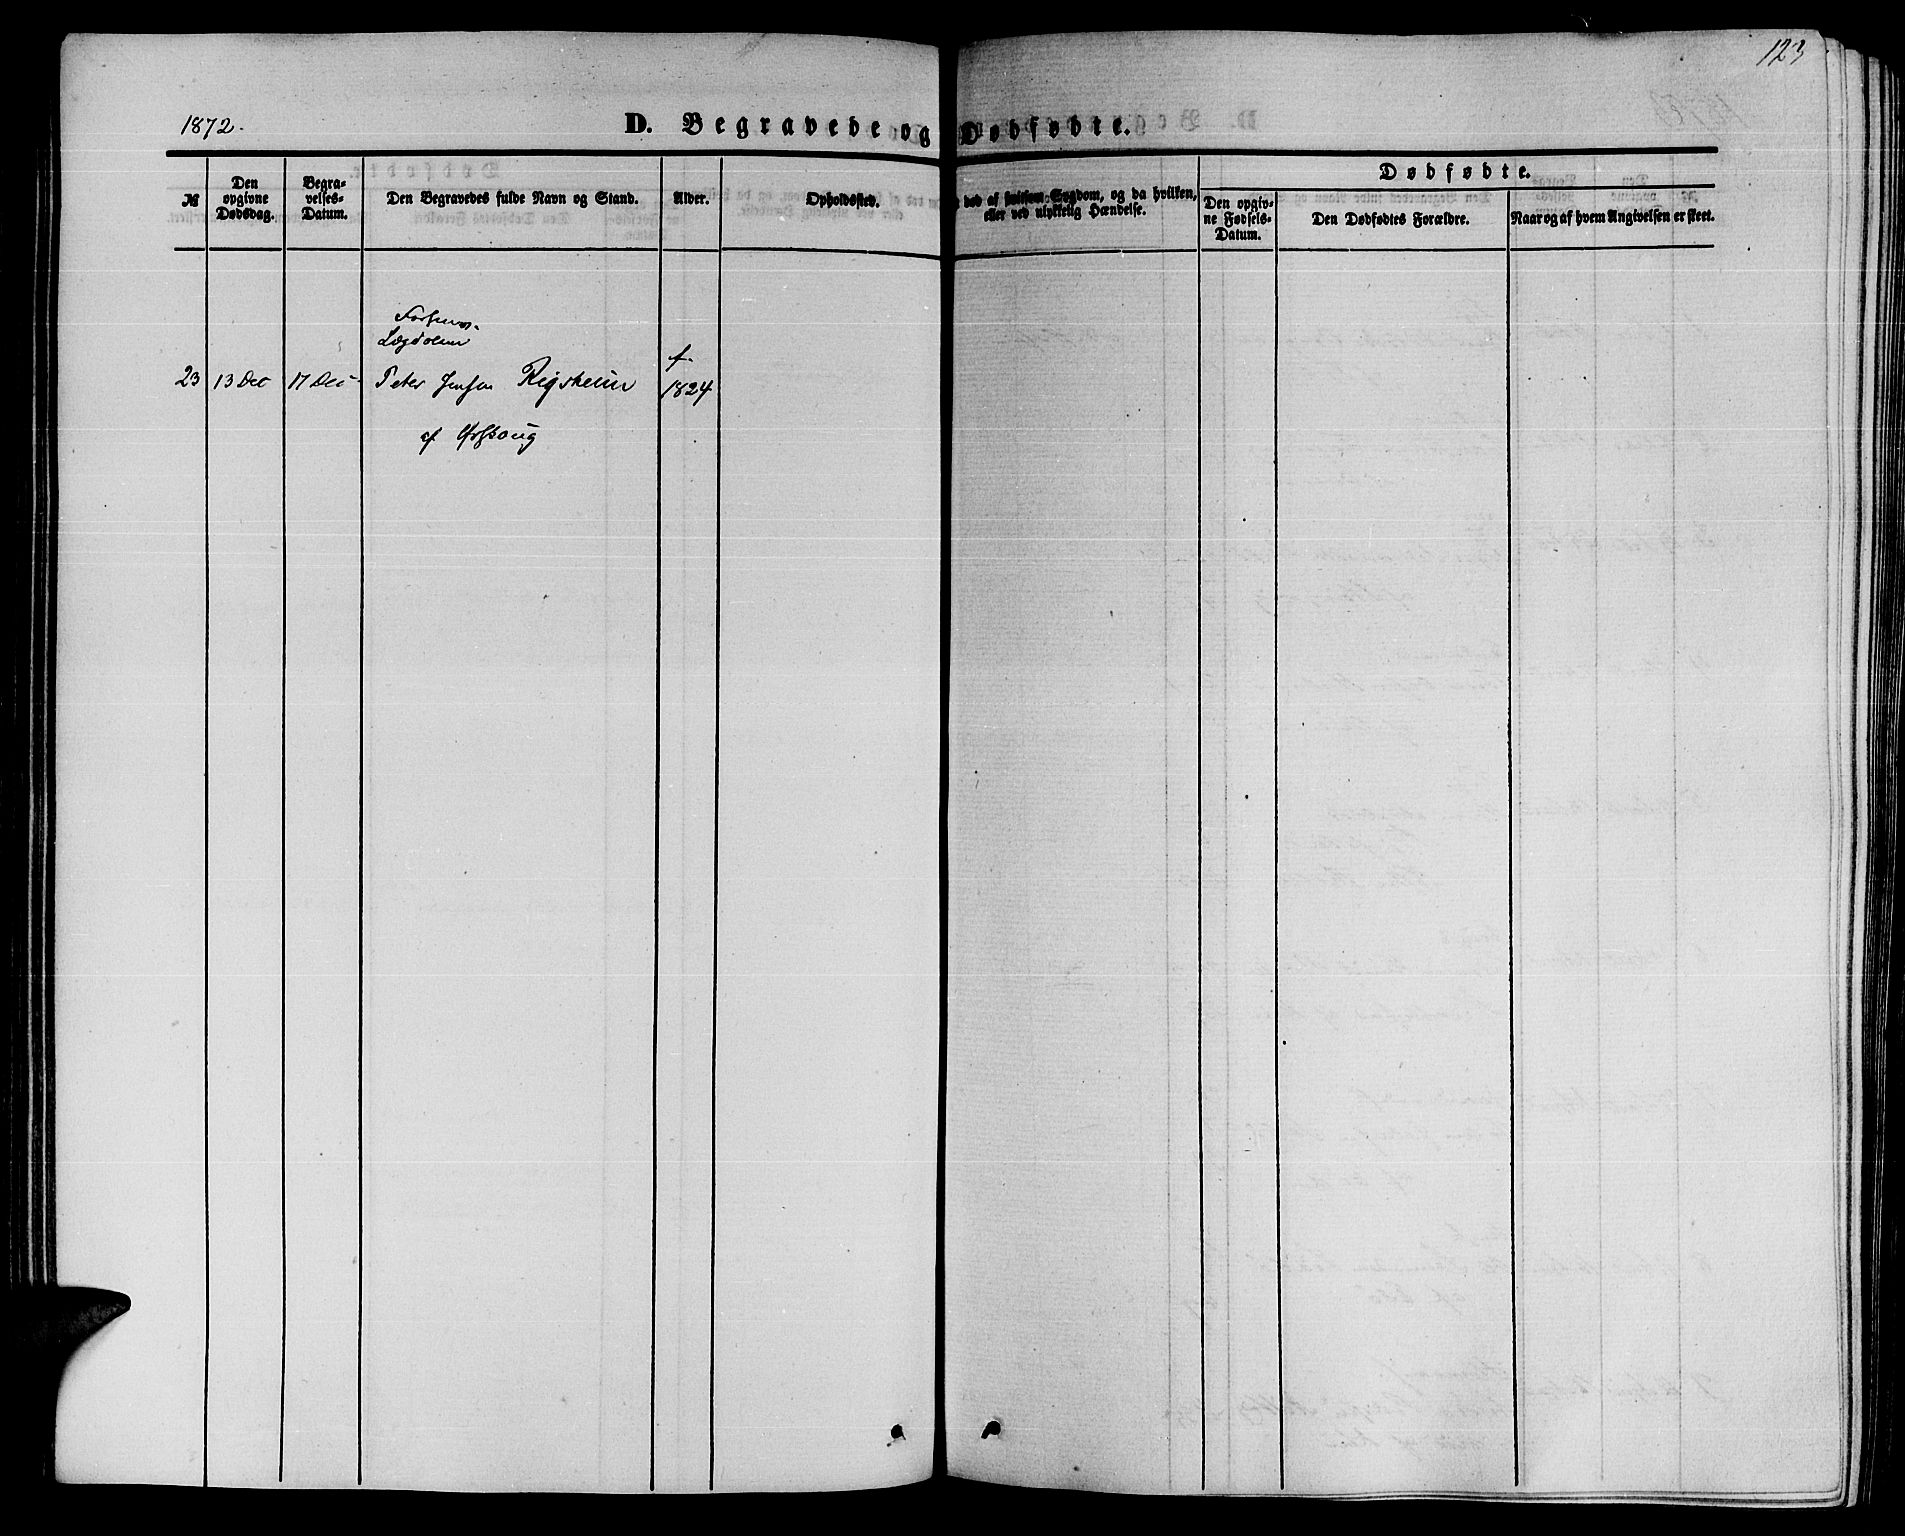 123
1872.
D. Begravede og Dødfødte.
Dødfødte.
№
Den opgivne Dødsdag.
Begravelses-Datum.
Den Begravedes fulde Navn og Stand.
Alder.
Opholdssted.
ved af smitsom Sygdom, og da hvilken,
eller ved ulykkelig Hændelse.
Den opgivne Fødsels-Datum.
Den Dødfødtes Forældre.
Naar og af hvem Angivelsen er skeet.
Lægdslem
f.
23 13 Dec 17 Dec Peter Jensen Rigsheim 1824
af Ørskoug